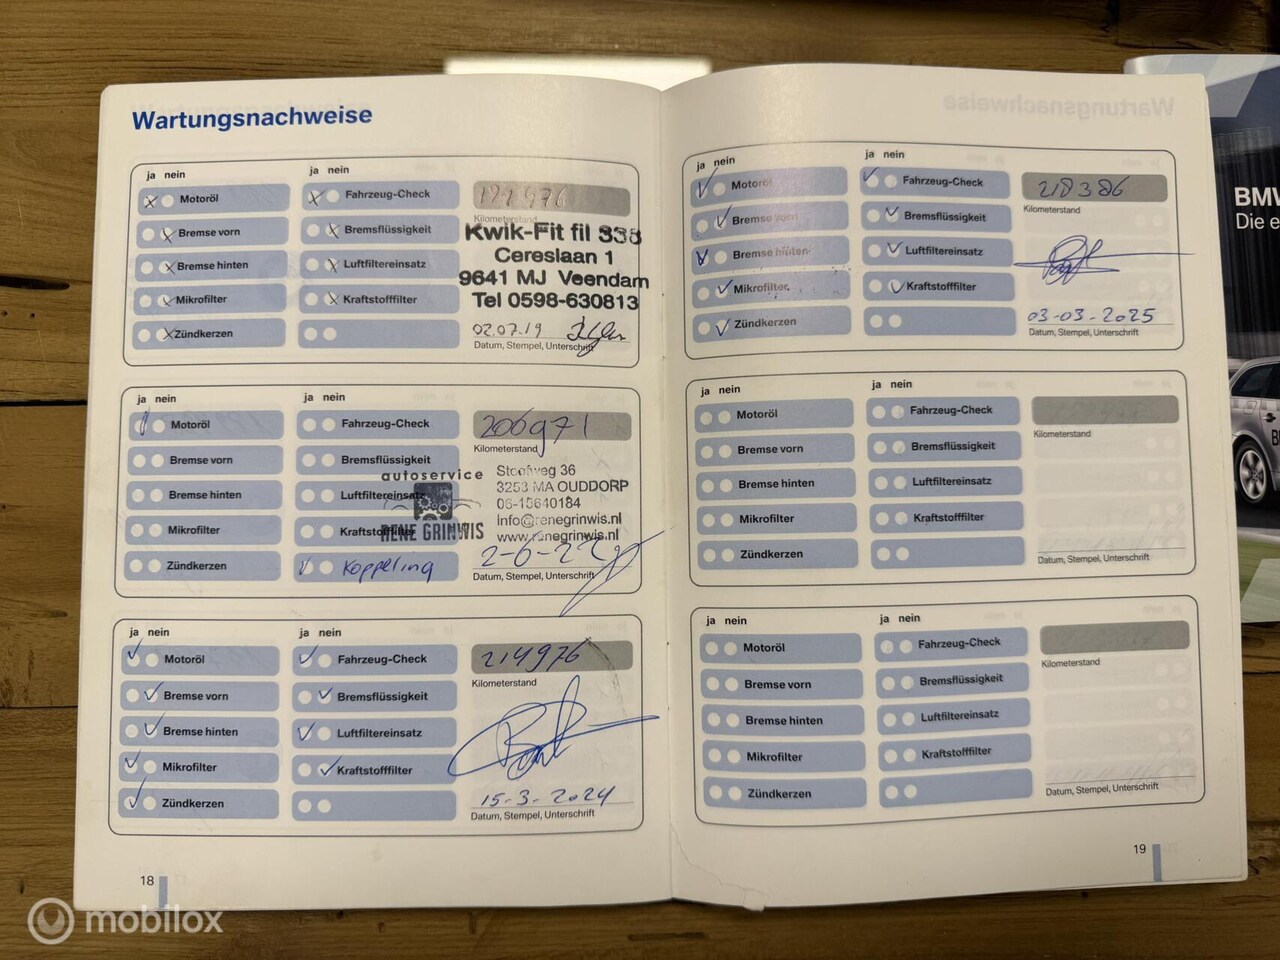 Wartungsnachweise
ja nein
ja nein
Motoröl
Fahrzeug-Check
Kilometerstand
Bremse vorn
Bremsflüssigkeit
Kwik-Fit fil 338
Cereslaan 1
9641 MJ Veendam
Tel 0598-630813
Bremse hinten
Luftfiltereinsatz
Mikrofilter
Kraftstofffilter
Zündkerzen
02.07.19
Datum, Stempel, Unterschrift
ja nein
ja nein
Motoröl
Fahrzeug-Check
206971
Kilometerstand
Bremse vorn
Bremsflüssigkeit
autoservice
RENE GRINWIS
Stoofweg 36
3253 MA OUDDORP
06-15640184
info@renegrinwis.nl
www.renegrinwis.nl
Bremse hinten
Luftfiltereinsatz
Mikrofilter
Kraftstofffilter
Zündkerzen
Koppeling
2-6-22
Datum, Stempel, Unterschrift
ja nein
ja nein
Motoröl
Fahrzeug-Check
214976
Kilometerstand
Bremse vorn
Bremsflüssigkeit
Bremse hinten
Luftfiltereinsatz
Mikrofilter
Kraftstofffilter
Zündkerzen
15-3-2024
Datum, Stempel, Unterschrift
18
ja nein
ja nein
Motoröl
Fahrzeug-Check
218386
Kilometerstand
Bremse vorn
Bremsflüssigkeit
Bremse hinten
Luftfiltereinsatz
Mikrofilter
Kraftstofffilter
Zündkerzen
03-03-2025
Datum, Stempel, Unterschrift
ja nein
ja nein
Motoröl
Fahrzeug-Check
Kilometerstand
Bremse vorn
Bremsflüssigkeit
Bremse hinten
Luftfiltereinsatz
Mikrofilter
Kraftstofffilter
Zündkerzen
Datum, Stempel, Unterschrift
ja nein
ja nein
Motoröl
Fahrzeug-Check
Kilometerstand
Bremse vorn
Bremsflüssigkeit
Bremse hinten
Luftfiltereinsatz
Mikrofilter
Kraftstofffilter
Zündkerzen
Datum, Stempel, Unterschrift
19
BMW
Die e
mobilox